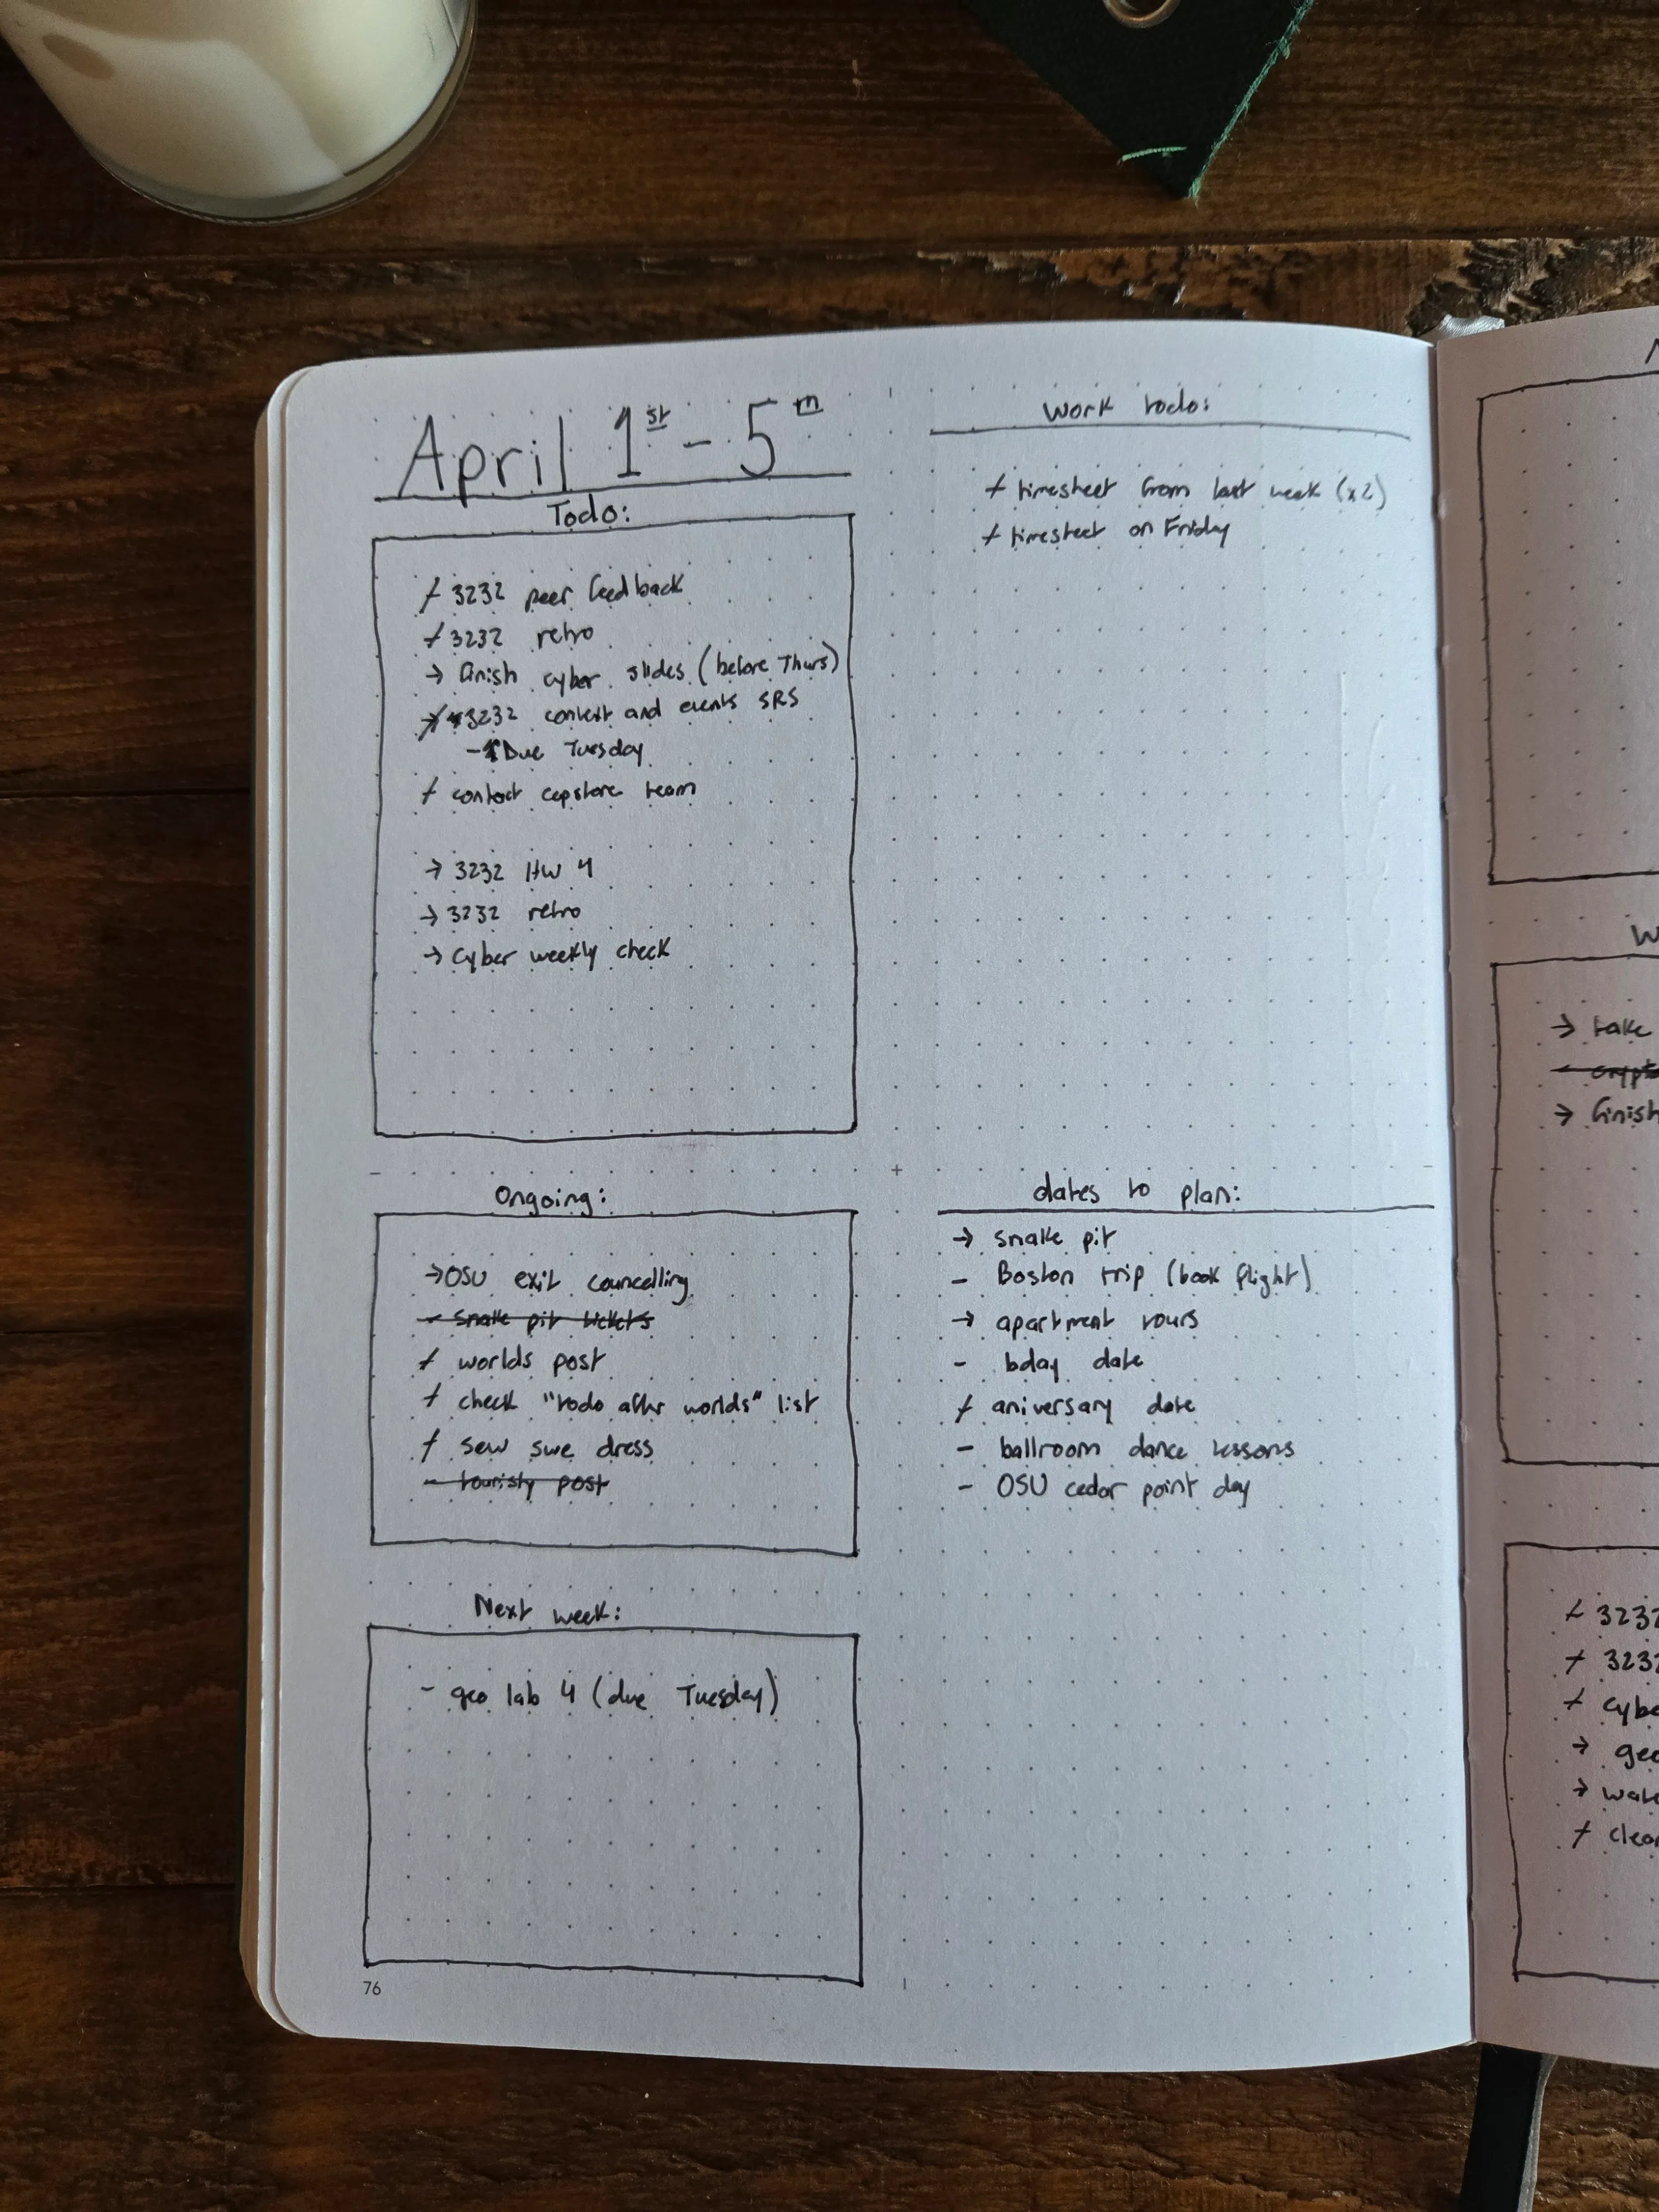 April 1st - 5th
Todo:
+ 3232 peer feedback
+ 3232 retro
→ finish cyber slides (before Thurs)
3232 context and events SRS
- Due Tuesday
+ contact capstone team
→ 3232 HW 4
→ 3232 retro
→ Cyber weekly check
Ongoing:
→ OSU exit councelling
- snake pit tickets
+ worlds post
+ check "todo after worlds" list
+ sew swe dress
- touristy post
Next week:
- geo lab 4 (due Tuesday)
76
Work todo:
+ timesheet from last week (x2)
+ timesheet on Friday
dates to plan:
→ snake pit
- Boston trip (book flight)
→ apartment tours
- bday date
+ aniversary date
- ballroom dance lessons
- OSU cedar point day
→ take
→ finish
+ 3232
+ 323
→ geo